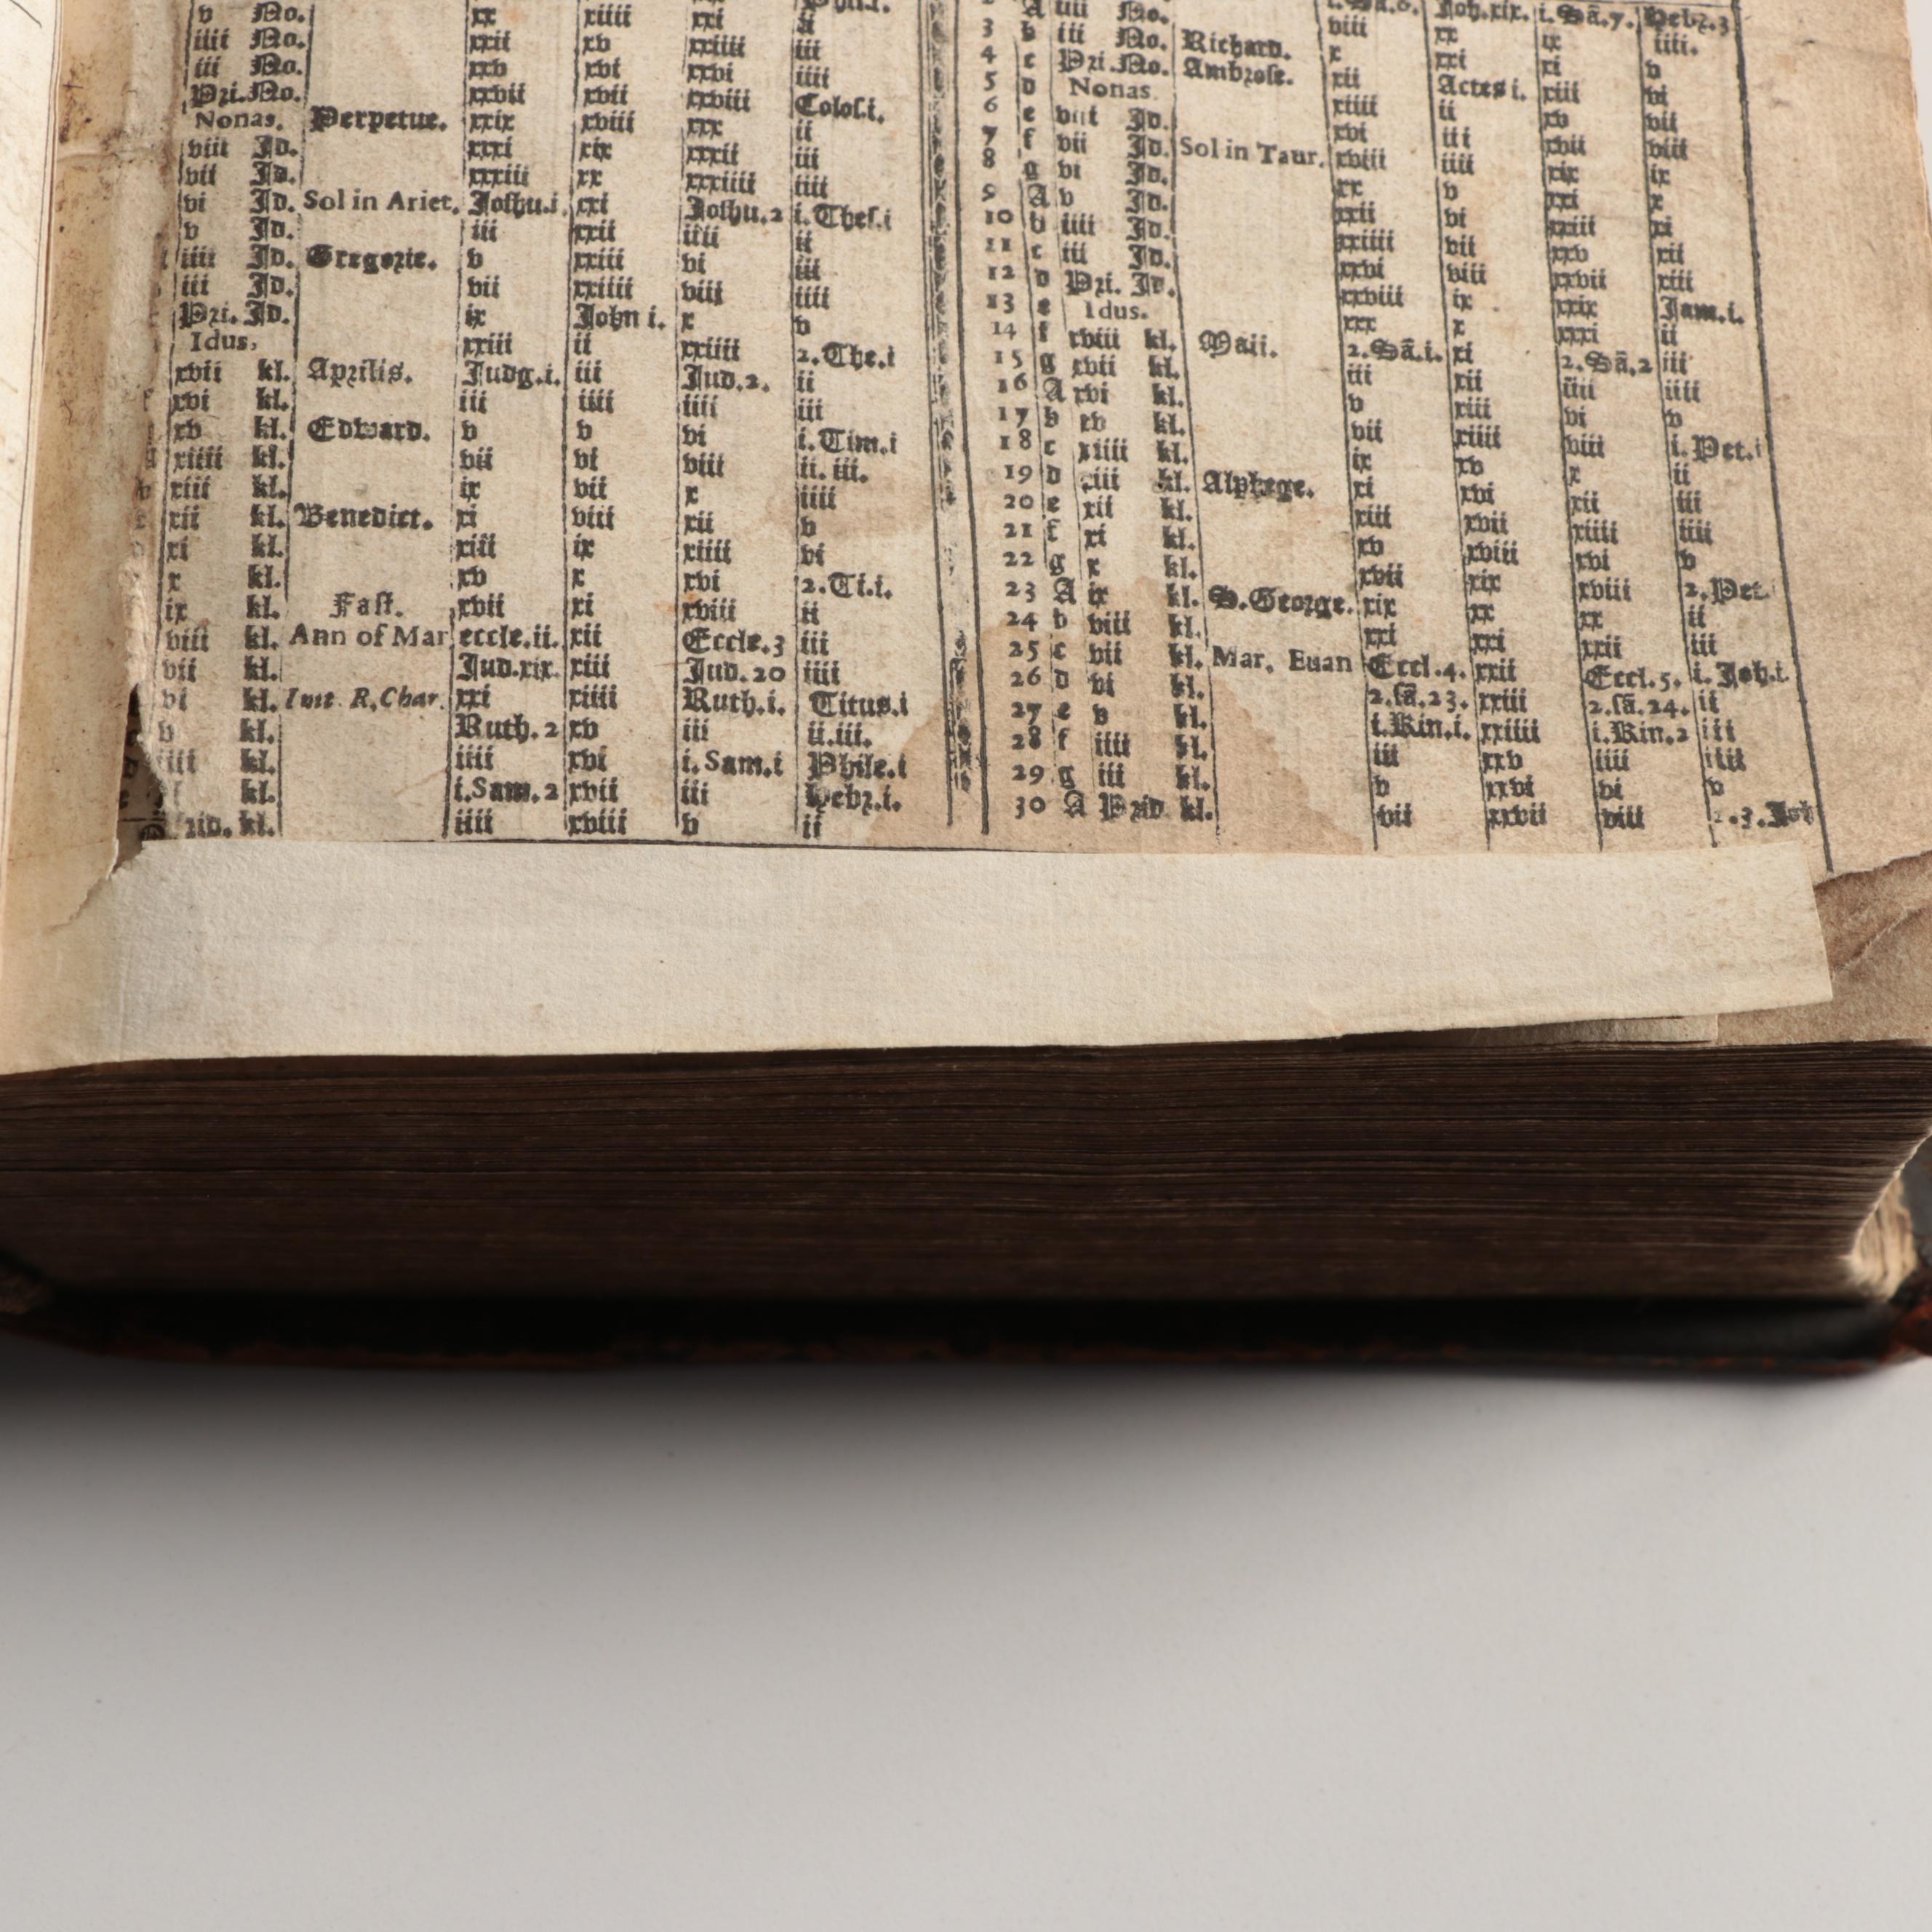 v No. xx xiiii xxi ii
iiii No. xxii xv xxiiii iii
iii No. xxv xvi xxvi iiii
Pri. No. xxvii xvii xxviii Colos.i.
Nonas. Perpetue. xxix xviii xxx ii
viii Id. xxxi xix xxxii iii
vii Id. xxxiii xx xxxiiii iiii
vi Id. Sol in Ariet. Joshu.i. xxi Joshu.2 i.Thes.i
v Id. iii xxii iiii ii
iiii Id. Gregorie. v xxiii vi iii
iii Id. vii xxiiii viii iiii
Pri. Id. ix John i. x v
Idus. xxiii ii xxiiii 2.The.i
xvii kl. Aprilis. Judg.i. iii Jud.2. ii
xvi kl. iii iiii iiii iii
xv kl. Edward. v v vi i.Tim.i
xiiii kl. vii vi viii ii.iii.
xiii kl. ix vii x iiii
xii kl. Benedict. xi viii xii v
xi kl. xiii ix xiiii vi
x kl. xv x xvi 2.Ti.i.
ix kl. Fast. xvii xi xviii ii
viii kl. Ann of Mar eccle.ii. xii Eccle.3 iii
vii kl. Jud.xix. xiii Jud.20 iiii
vi kl. Init R.Char. xxi xiiii Ruth.i. Titus.i
v kl. Ruth.2 xv iii ii.iii.
iiii kl. iiii xvi i.Sam.i Phile.i
kl. i.Sam.2 xvii iii Hebr.i.
kl. iiii xviii v ii
A iiii No. Joh.xix. i.Sā.7. Hebr.3
3 b iii No. Richard. viii xx ix iiii.
4 c Pri.No. Ambrose. x xxi xi v
5 d Nonas xii Actes i. xiii vi
6 e viii Id. xiiii ii xv vii
7 f vii Id. Sol in Taur. xvi iii xvii viii
8 g vi Id. xviii iiii xix ix
9 A v Id. xx v xxi x
10 b iiii Id. xxii vi xxiii xi
11 c iii Id. xxiiii vii xxv xii
12 d Pri. Id. xxvi viii xxvii xiii
13 e Idus. xxviii ix xxix Jam.i.
14 f xviii kl. Maii. xxx x xxxi ii
15 g xvii kl. 2.Sā.i. xi 2.Sā.2 iii
16 A xvi kl. iii xii iiii iiii
17 b xv kl. v xiii vi v
18 c xiiii kl. vii xiiii viii i.Pet.i
19 d xiii kl. Alphege. ix xv x ii
20 e xii kl. xi xvi xii iii
21 f xi kl. xiii xvii xiiii iiii
22 g x kl. xv xviii xvi v
23 A ix kl. S.George. xvii xix xviii 2.Pet
24 b viii kl. xix xx xx ii
25 c vii kl. Mar. Euan xxi xxi xxii iii
26 d vi kl. Eccl.4. xxii Eccl.5. i.Joh.i.
27 e v kl. 2.sā.23. xxiii 2.sā.24. ii
28 f iiii kl. i.Kin.i. xxiiii i.Kin.2 iii
29 g iii kl. iii xxv iiii iiii
30 A Prid kl. v xxvi vi v
vii xxvii viii